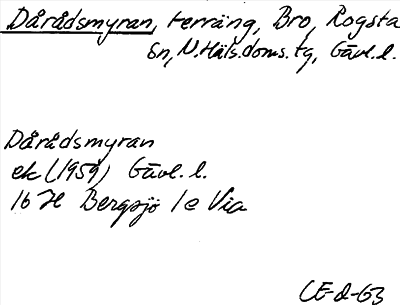 Dårådsmyran, terräng, Bro, Rogsta
sn, N. Häls. doms. tg, Gävl. l.
Dårådsmyran
ek (1959) Gävl. l.
16 H Bergsjö 1e Via
CE-d-63